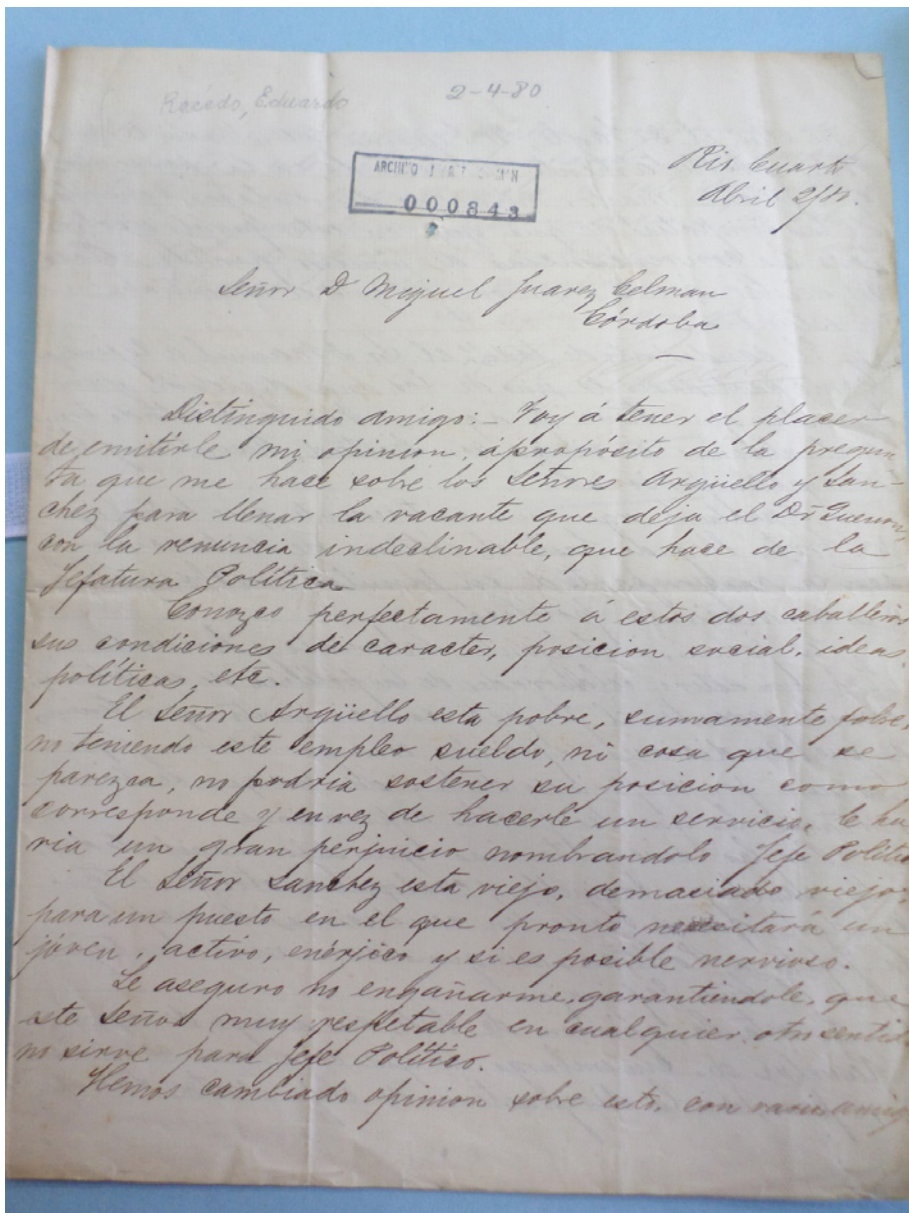 Racedo, Eduardo
2-4-80
ARCHIVO
000843
Rio Cuarto
Abril 2/80.
Señor D Miguel Juarez Celman
Córdoba
Distinguido amigo:- Voy á tener el placer
de emitirle mi opinion, ápropósito de la pregun-
ta que me hace sobre los Señores Argüello y San-
chez para llenar la vacante que deja el Dr
con la renuncia indeclinable, que hace de la
Jefatura Política
Conozco perfectamente á estos dos caballeros
sus condiciones de caracter, posicion social, ideas
políticas, etc.
El Señor Argüello esta pobre, sumamente pobre,
no teniendo este empleo sueldo, ni cosa que se
parezca, no podria sostener su posicion como
corresponde y en vez de hacerle un servicio, le ha
ria un gran perjuicio nombrandolo Jefe Politico
El Señor Sanchez esta viejo, demasiado viejo,
para un puesto en el que pronto necesitará un
jóven, activo, enérjico y si es posible nervioso.
Le aseguro no engañarme, garantiendole, que
este Señor muy respetable en cualquier otro sentido
no sirve para Jefe Político.
Hemos cambiado opinion sobre esto, con varios amigos